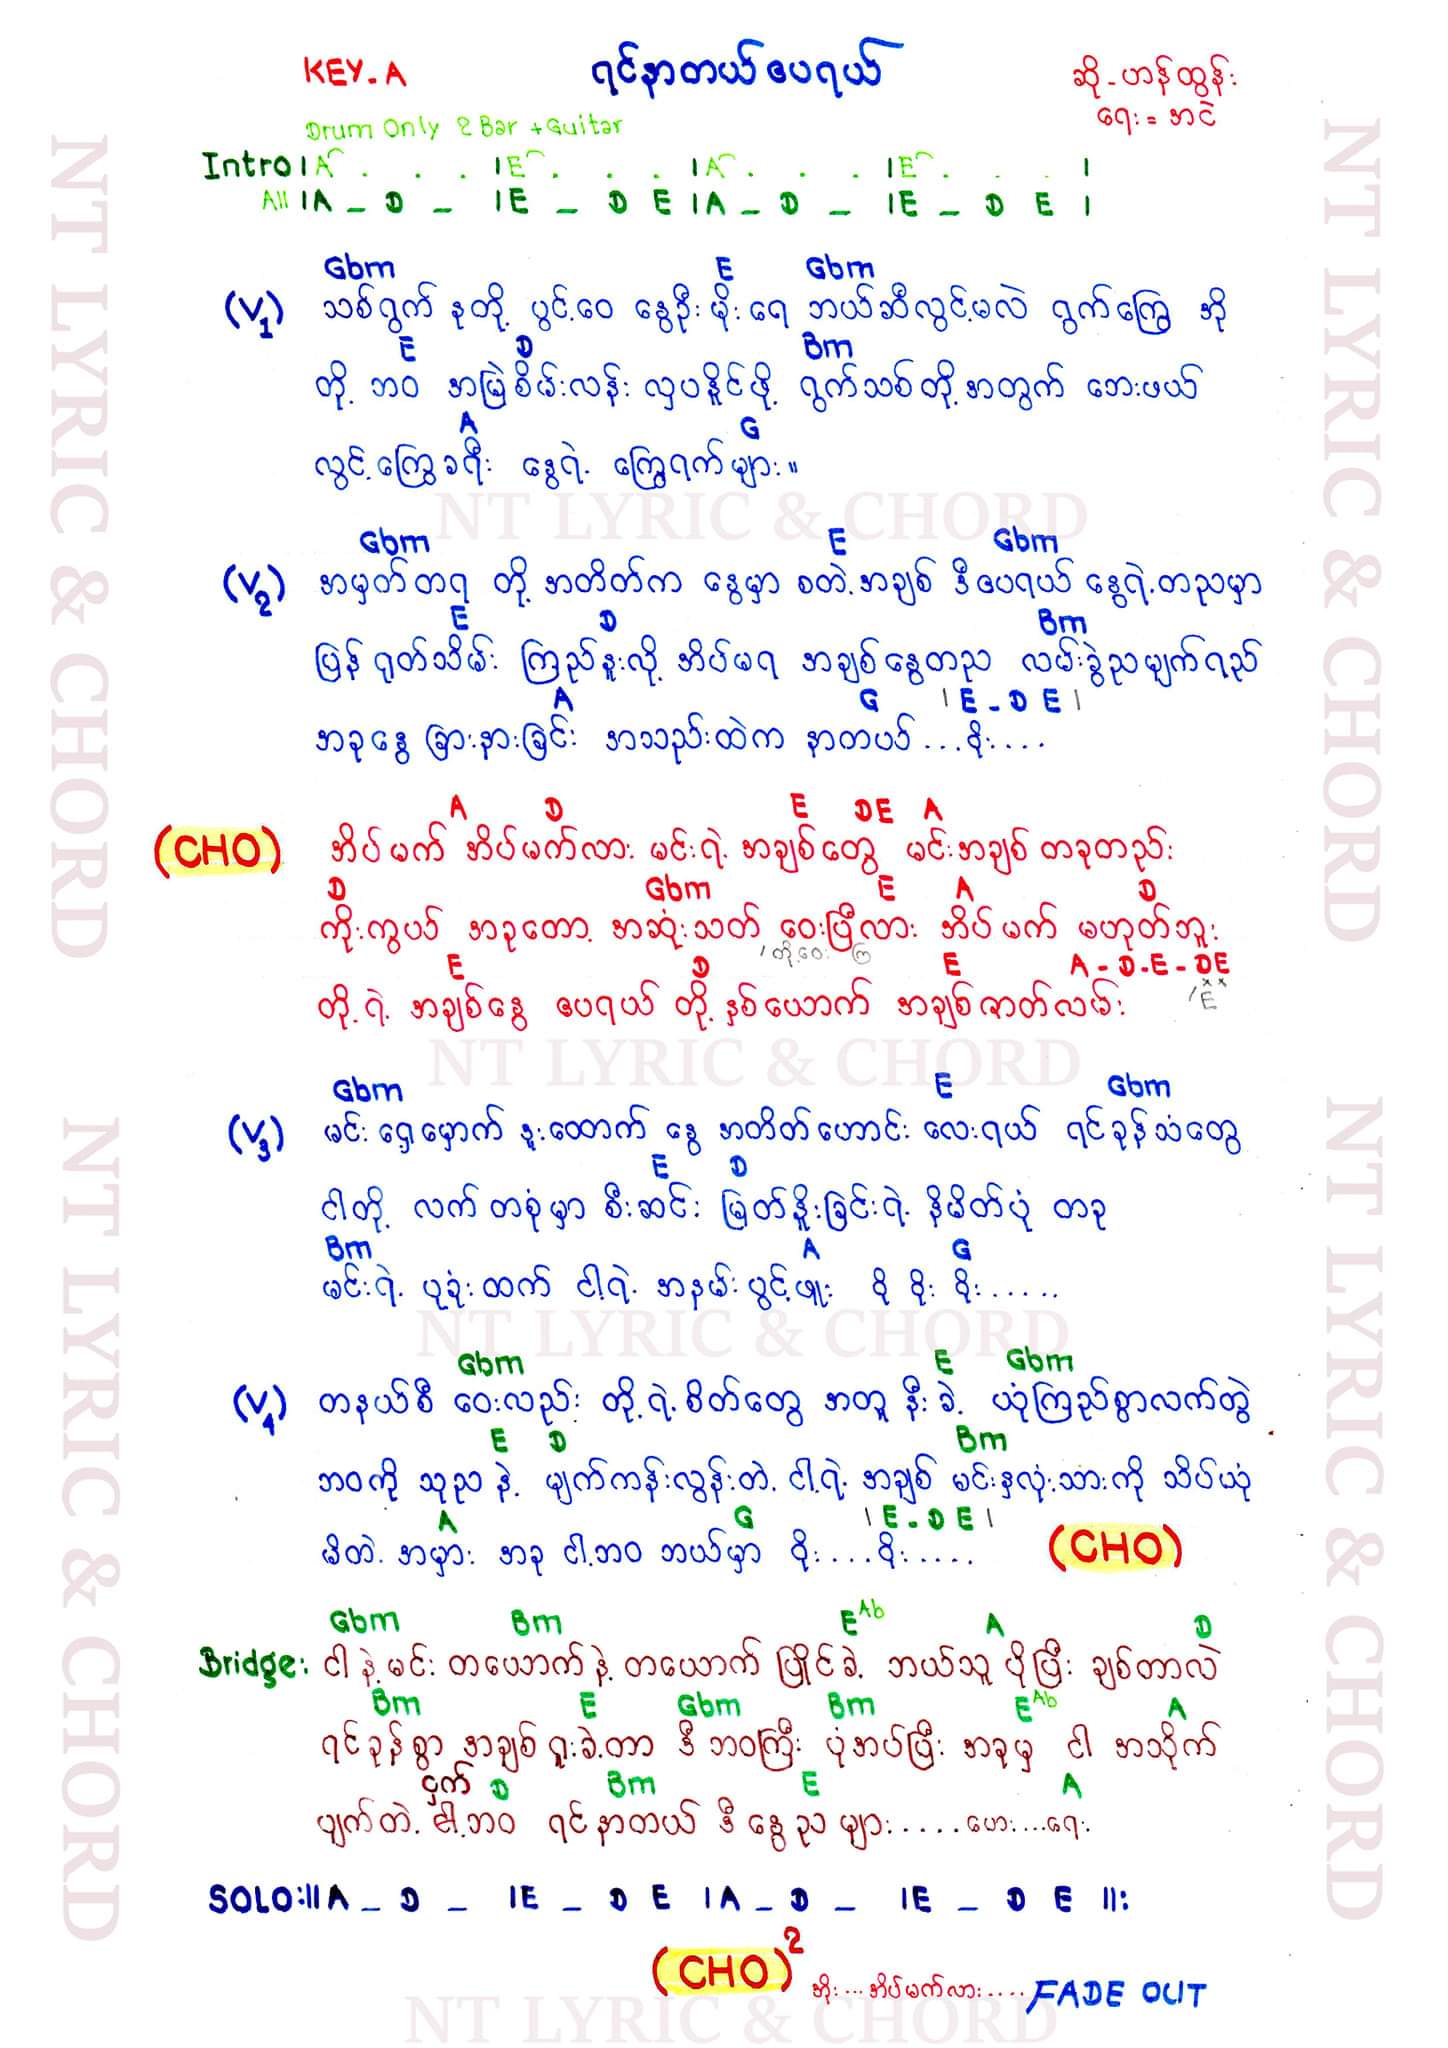 KEY-A
ရင်နာတယ်ဧပရယ်
ဆို-ဟန်ထွန်း
ရေး=အငဲ
Drum Only 2 Bar + Guitar
Intro | A . . . | E . . . | A . . . | E . . . |
All | A _ D _ | E _ D E | A _ D _ | E _ D E |
Gbm E Gbm
(V1) သစ်ရွက် နုတို့ ပွင့်ဝေ နွေဦးမိုးရေ ဘယ်ဆီလွင့်မလဲ ရွက်ကြွေ အို
E D Bm
တို့ ဘဝ အမြဲစိမ်းလန်း လှပနိူင်ဖို့ ရွက်သစ်တို့အတွက် ဘေးဖယ်
A G
လွင့်ကြွေခရီး နွေရဲ့ ကြွေရက်များ။
Gbm E Gbm
(V2) အမှတ်တရ တို့ အတိတ်က နွေမှာ စတဲ့အချစ် ဒီဧပရယ် နွေရဲ့တညမှာ
E D Bm
ပြန် ရုတ်သိမ်း ကြည်နူးလို့ အိပ်မရ အချစ်နွေတည လမ်းခွဲညမျက်ရည်
A G | E - D E |
အခုနွေ ခြားနားခြင်း အသည်းထဲက နာတယ် ...ဝိုး....
A D E DE A
(CHO) အိပ်မက် အိပ်မက်လား မင်းရဲ့ အချစ်တွေ မင်းအချစ် တခုတည်း
D Gbm E A D
ကိုးကွယ် အခုတော့ အဆုံးသတ် ဝေးပြီလား အိပ်မက် မဟုတ်ဘူး
E D E A-D-E-DE
တို့ရဲ့ အချစ်နွေ ဧပရယ် တို့ နှစ်ယောက် အချစ်ဇာတ်လမ်း
Gbm E Gbm
(V3) မင်း ငှေ့မှောက် နူးထောက် နွေ အတိတ်ဟောင်း လေးရယ် ရင်ခုန်သံတွေ
E D
ငါတို့ လက်တစုံမှာ စီးဆင်း မြတ်နိူးခြင်းရဲ့ နိမိတ်ပုံ တခု
Bm A G
မင်းရဲ့ ပုခုံးထက် ငါ့ရဲ့ အနမ်းပွင့်ဖျူး ဝို ဝိုး ဝိုး.....
Gbm E Gbm
(V4) တနယ်စီ ဝေးလည်း တို့ရဲ့စိတ်တွေ အတူ နီးခဲ့ ယုံကြည်စွာလက်တွဲ
E D Bm
ဘဝကို သုည နဲ့ မျက်ကန်းလွန်းတဲ့ ငါ့ရဲ့ အချစ် မင်းနှလုံးသားကို သိပ်ယုံ
A G | E - D E |
မိတဲ့ အမှား အခု ငါ့ဘဝ ဘယ်မှာ ဝိုး....ဝိုး.... (CHO)
Gbm Bm E Ab A D
Bridge: ငါနဲ့မင်း တယောက်နဲ့ တယောက် ပြိုင်ခဲ့ ဘယ်သူ ပိုပြီး ချစ်တာလဲ
Bm E Gbm Bm E Ab A
ရင်ခုန်စွာ အချစ်ရူးခဲ့တာ ဒီဘဝကြီး ပုံအပ်ပြီး အခုမှ ငါ အသိုက်
ငှက် D Bm E A
ပျက်တဲ့ ငါ့ဘဝ ရင်နာတယ် ဒီနွေညများ.....ဟေး...ရေး
SOLO:|| A _ D _ | E _ D E | A _ D _ | E _ D E ||:
(CHO)2 အိုး...အိပ်မက်လား.... FADE OUT
NT LYRIC & CHORD
NT LYRIC & CHORD
NT LYRIC & CHORD
NT LYRIC & CHORD
NT LYRIC & CHORD
NT LYRIC & CHORD
NT LYRIC & CHORD
NT LYRIC & CHORD